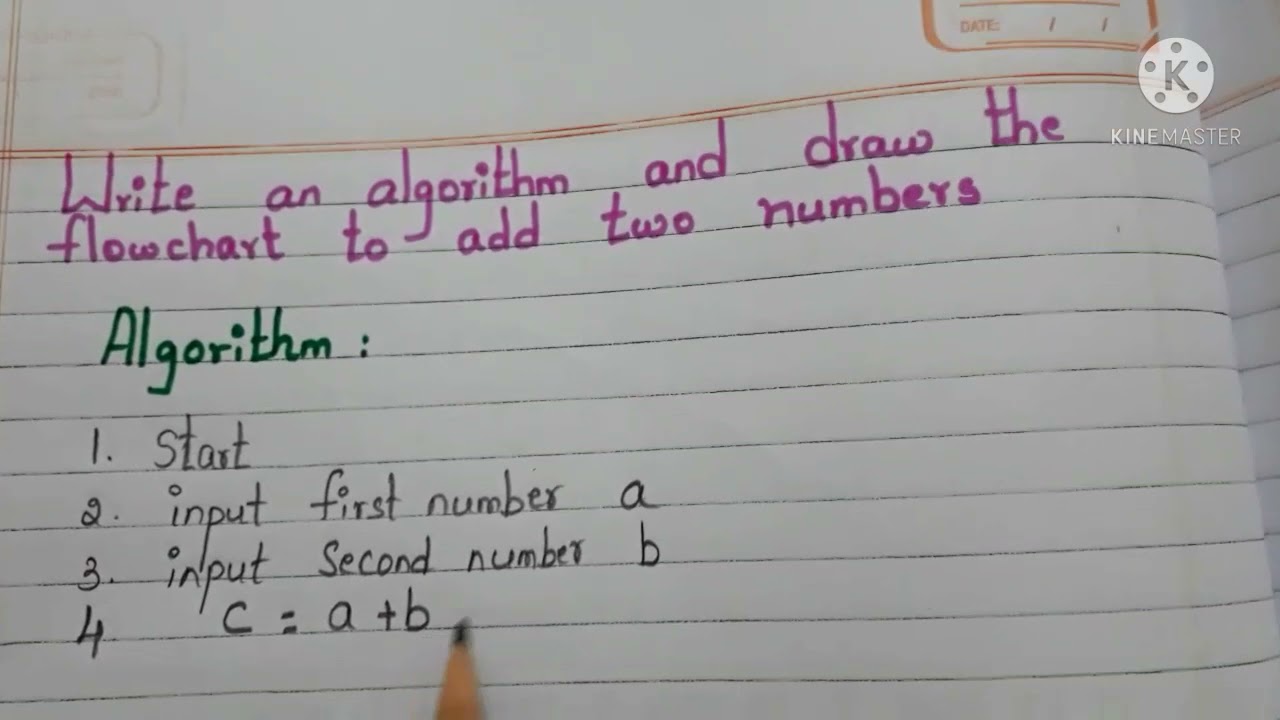 DATE: / /
K
KINEMASTER
Write an algorithm and draw the
flowchart to add two numbers
Algorithm:
1. Start
2. input first number a
3. input second number b
4 c = a + b